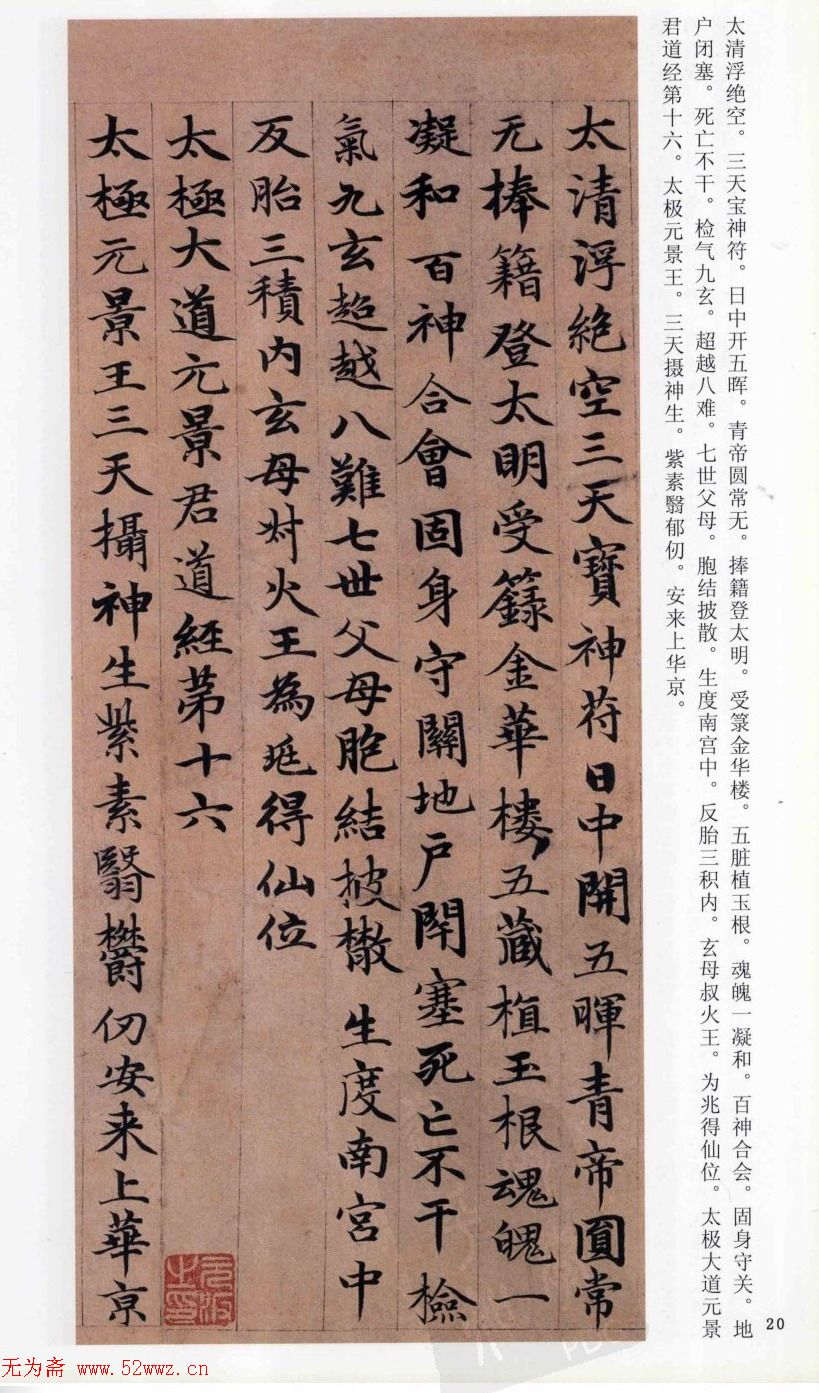 太清浮绝空。三天宝神符。日中开五晖。青帝圆常无。捧籍登太明。受箓金华楼。五脏植玉根。魂魄一凝和。百神合会。固身守关。地
户闭塞。死亡不干。检气九玄。超越八难。七世父母。胞结披散。生度南宫中。反胎三积内。玄母叔火王。为兆得仙位。太极大道元景
君道经第十六。太极元景王。三天摄神生。紫素翳郁仞。安来上华京。
太清浮絶空三天寶神苻日中開五暉青帝圓常
无捧籍登太明受籙金華樓五藏植玉根魂魄一
凝和百神合會固身守關地户閇塞死亡不干檢
氣九玄超越八難七世父母胞結披散生度南宫中
反胎三積内玄母尗火王為兆得仙位
太極大道元景君道經第十六
太極元景王三天攝神生紫素翳欝仞安来上華京
20
无为斋 www.52wwz.cn